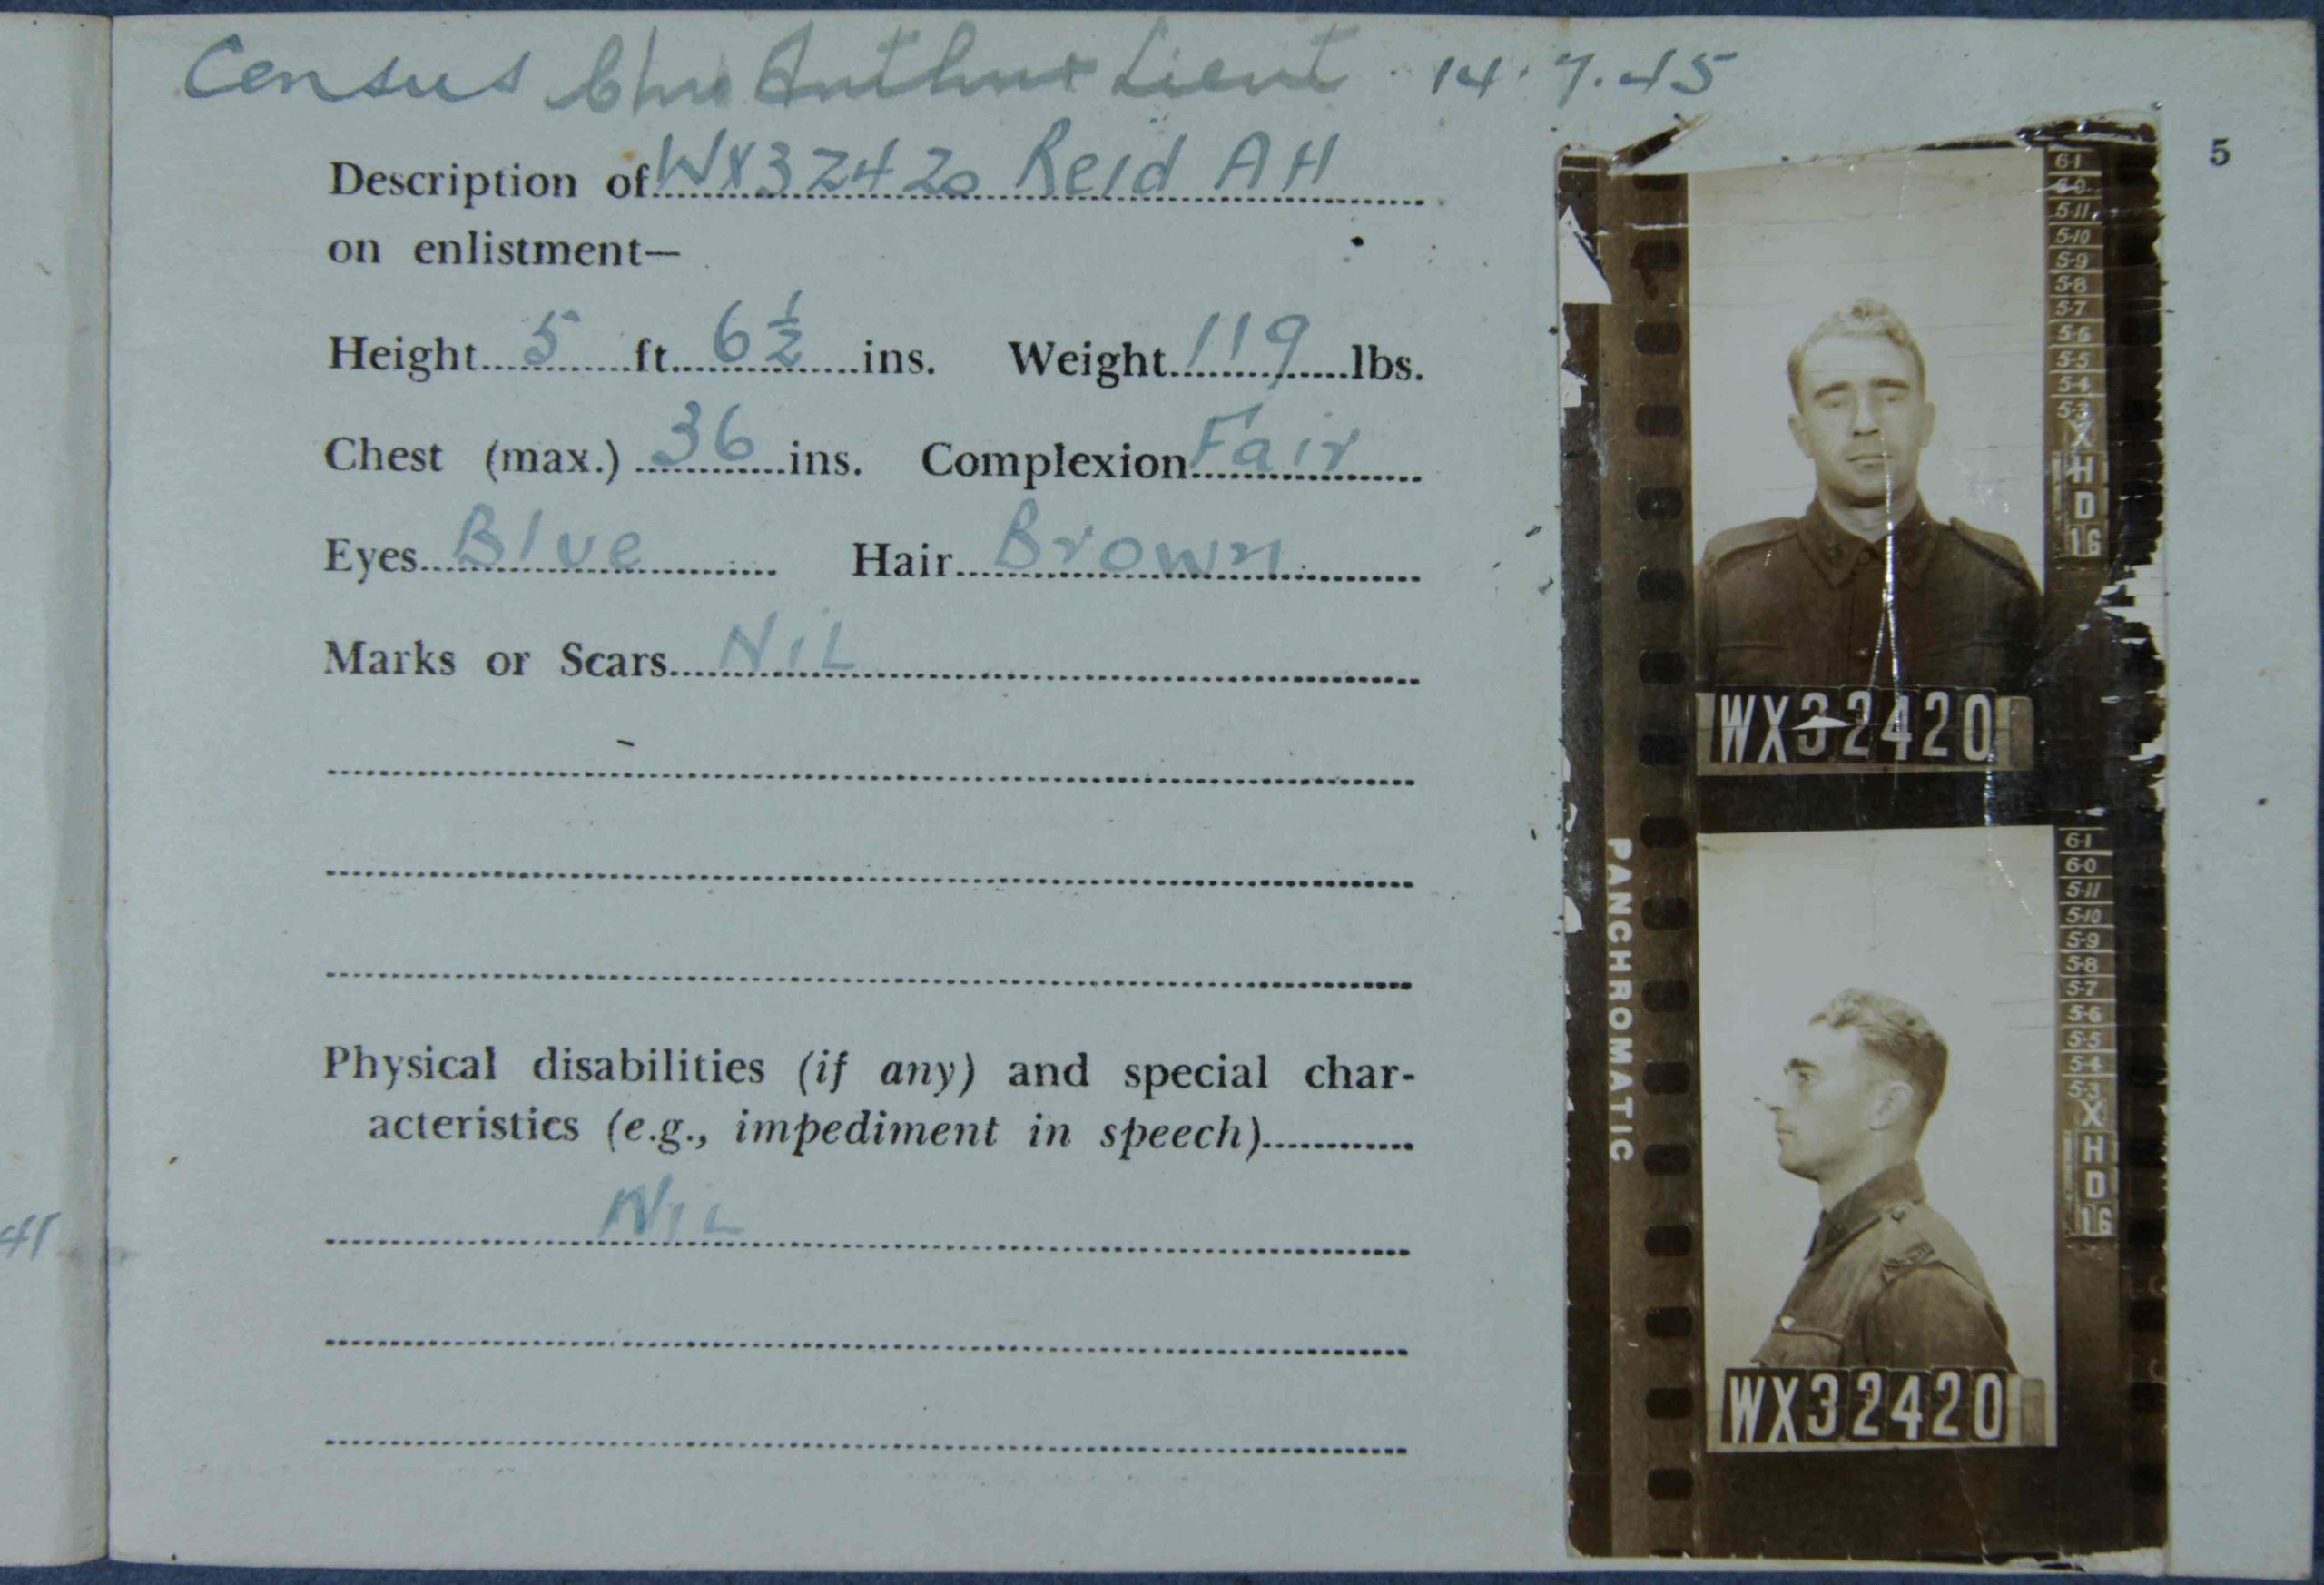 Census Arthur Lieut. 14.7.45
5
Description of WX32420 Reid AH
on enlistment—
Height 5 ft. 6½ ins. Weight 119 lbs.
Chest (max.) 36 ins. Complexion Fair
Eyes Blue Hair Brown
Marks or Scars NiL
Physical disabilities (if any) and special char-
acteristics (e.g., impediment in speech)
NiL
41
6-1
6-0
5-11
5-10
5-9
5-8
5-7
5-6
5-5
5-4
5-3
X
H
D
16
WX32420
PANCHROMATIC
6-1
6-0
5-11
5-10
5-9
5-8
5-7
5-6
5-5
5-4
5-3
X
H
D
16
WX32420